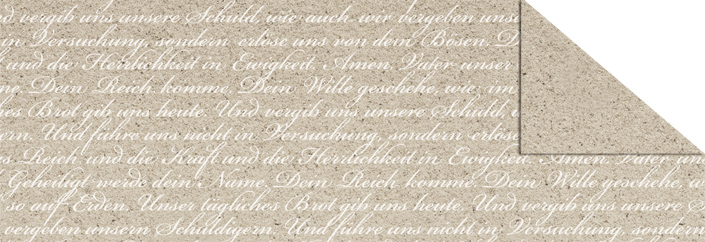 d vergib uns unsere Schuld, wie auch wir vergeben unse
in Versuchung, sondern erlöse uns von dem Bösen. D
und die Herrlichkeit in Ewigkeit. Amen. Vater unser
me. Dein Reich komme. Dein Wille geschehe, wie im
hes Brot gib uns heute. Und vergib uns unsere Schuld,
ern. Und führe uns nicht in Versuchung, sondern erlöse
es. Reich und die Kraft und die Herrlichkeit in Ewigkeit. Amen. Vater uns
Geheiligt werde dein Name. Dein Reich komme. Dein Wille geschehe, w
so auf Erden. Unser tägliches Brot gib uns heute. Und vergib uns unsere
vergeben unsern Schuldigern. Und führe uns nicht in Versuchung, sondern